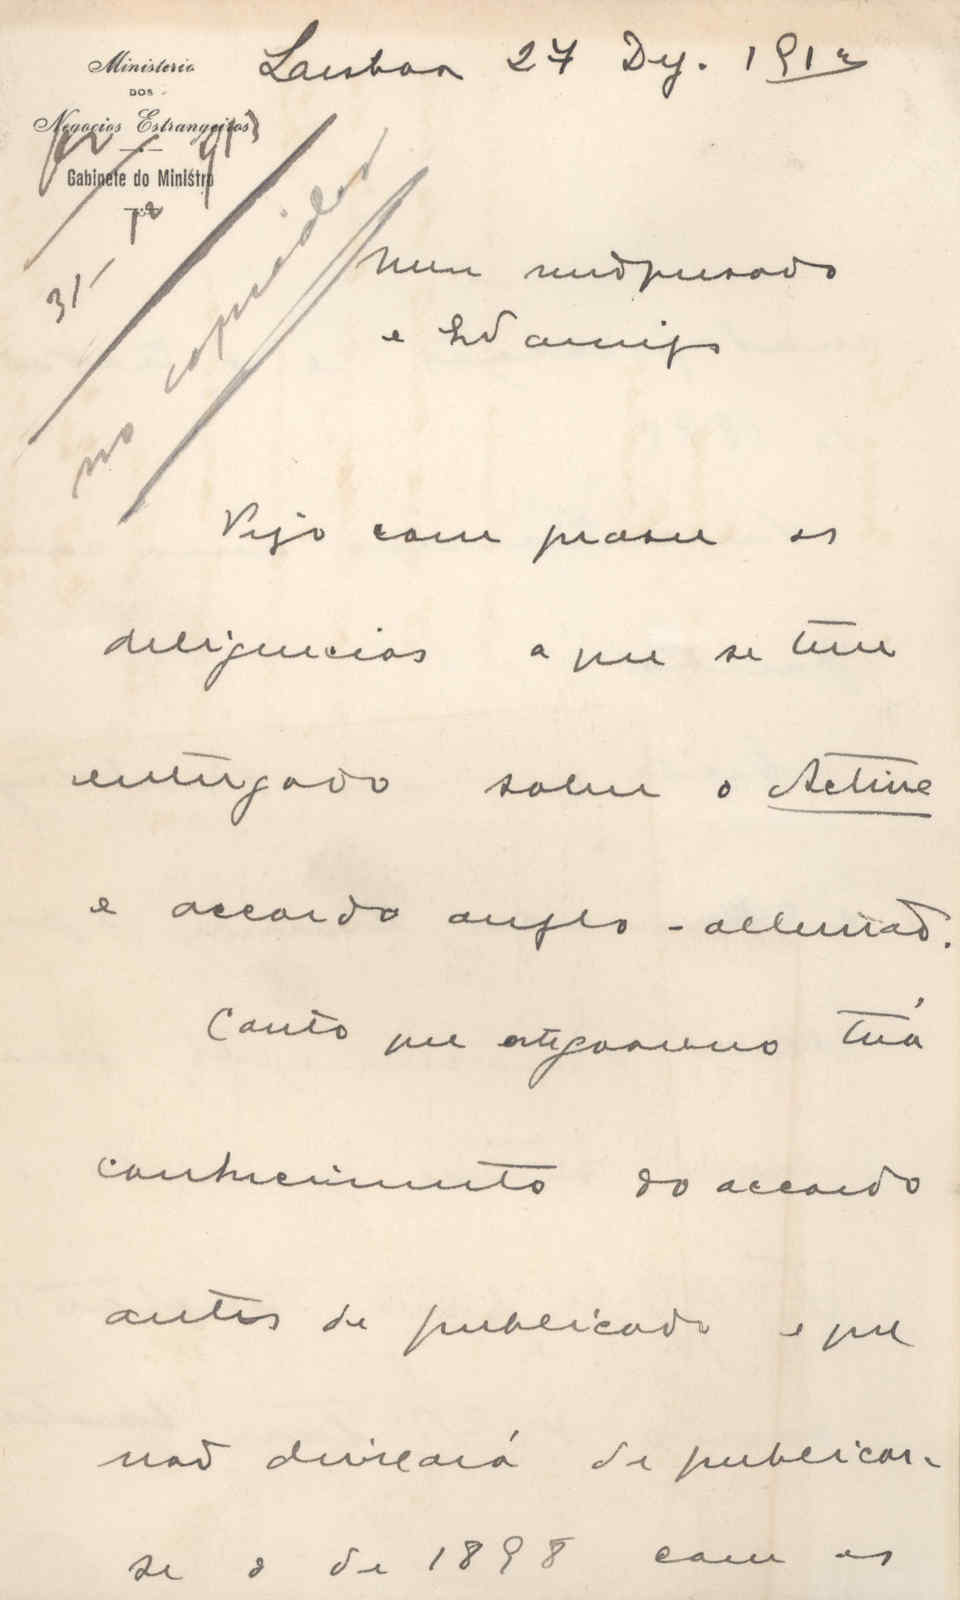 Ministerio
DOS
Negocios Estrangeiros
Gabinete do Ministro
Lisboa 27 Dz. 1912
31-
no copiador
Meu
e amigo
Vejo com prazer as
deligencias a que se tem
entregado sobre o Active
e accordo anglo-allemão.
Conto que este governo terá
conhecimento do accordo
antes de publicado e que
não deixará de publicar-
se o de 1898 com os